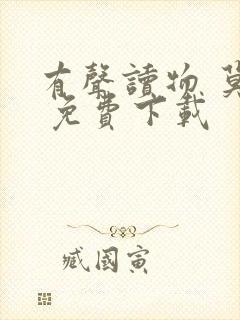 有聲讀物
免費下載
臧國寅